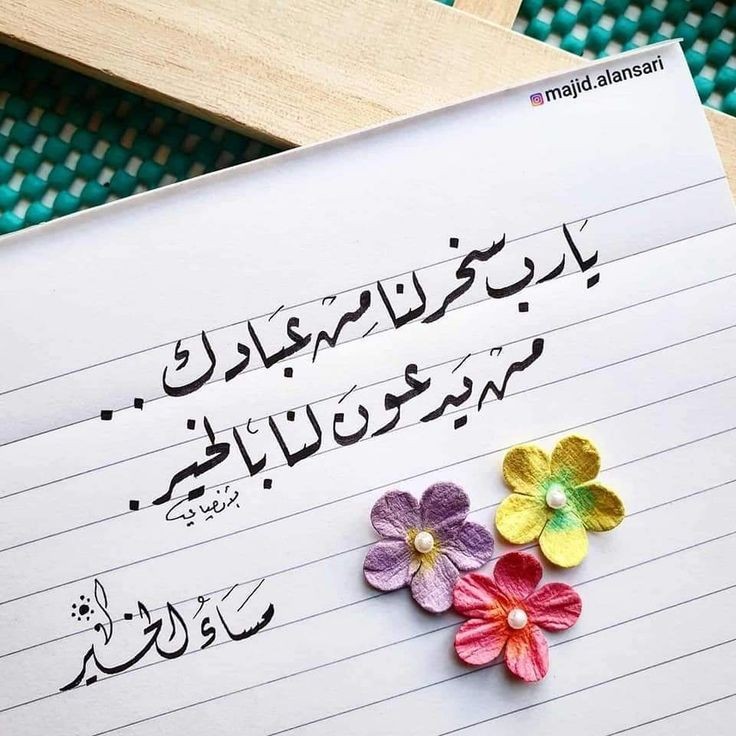 majid.alansari
يَارب سخر لنا مِن عبَادك ..
من يَدعونَ لنا بالخير .
مسَاءُ الخير